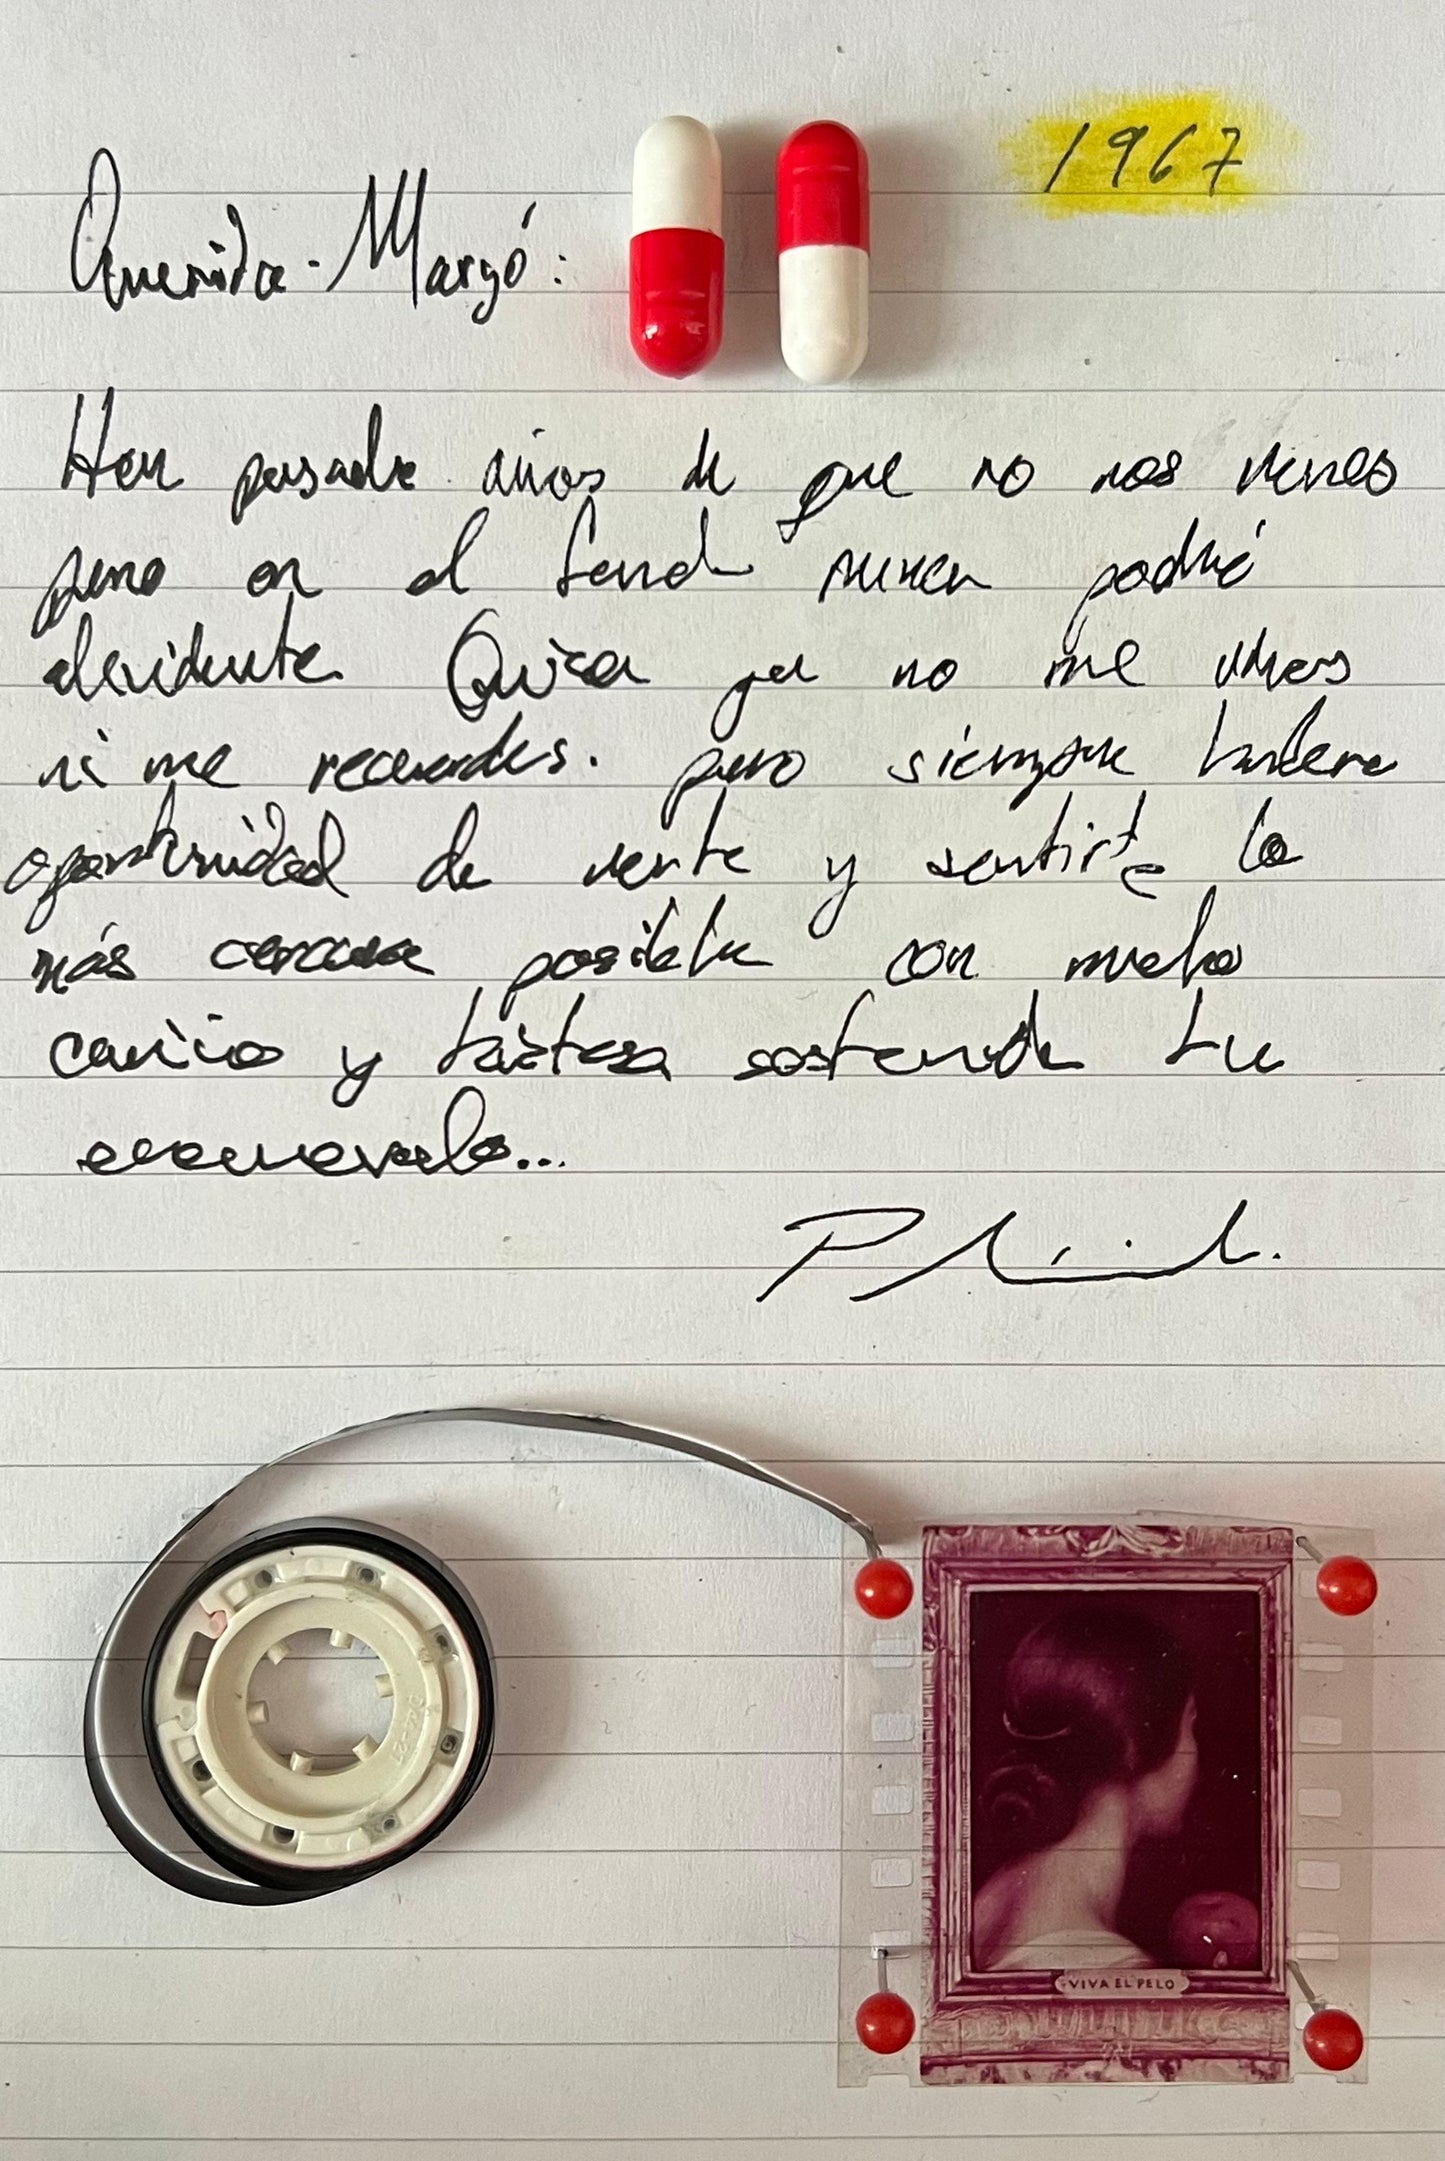 1967
Querida Margó:
Han pasado años de que no nos vemos
pero en el fondo nunca podré
olvidarte Quiza ya no me veas
ni me recuerdes. pero siempre habra
oportunidad de verte y sentirte lo
más cercana posible con mucho
cariño y tristeza tu
VIVA EL PELO